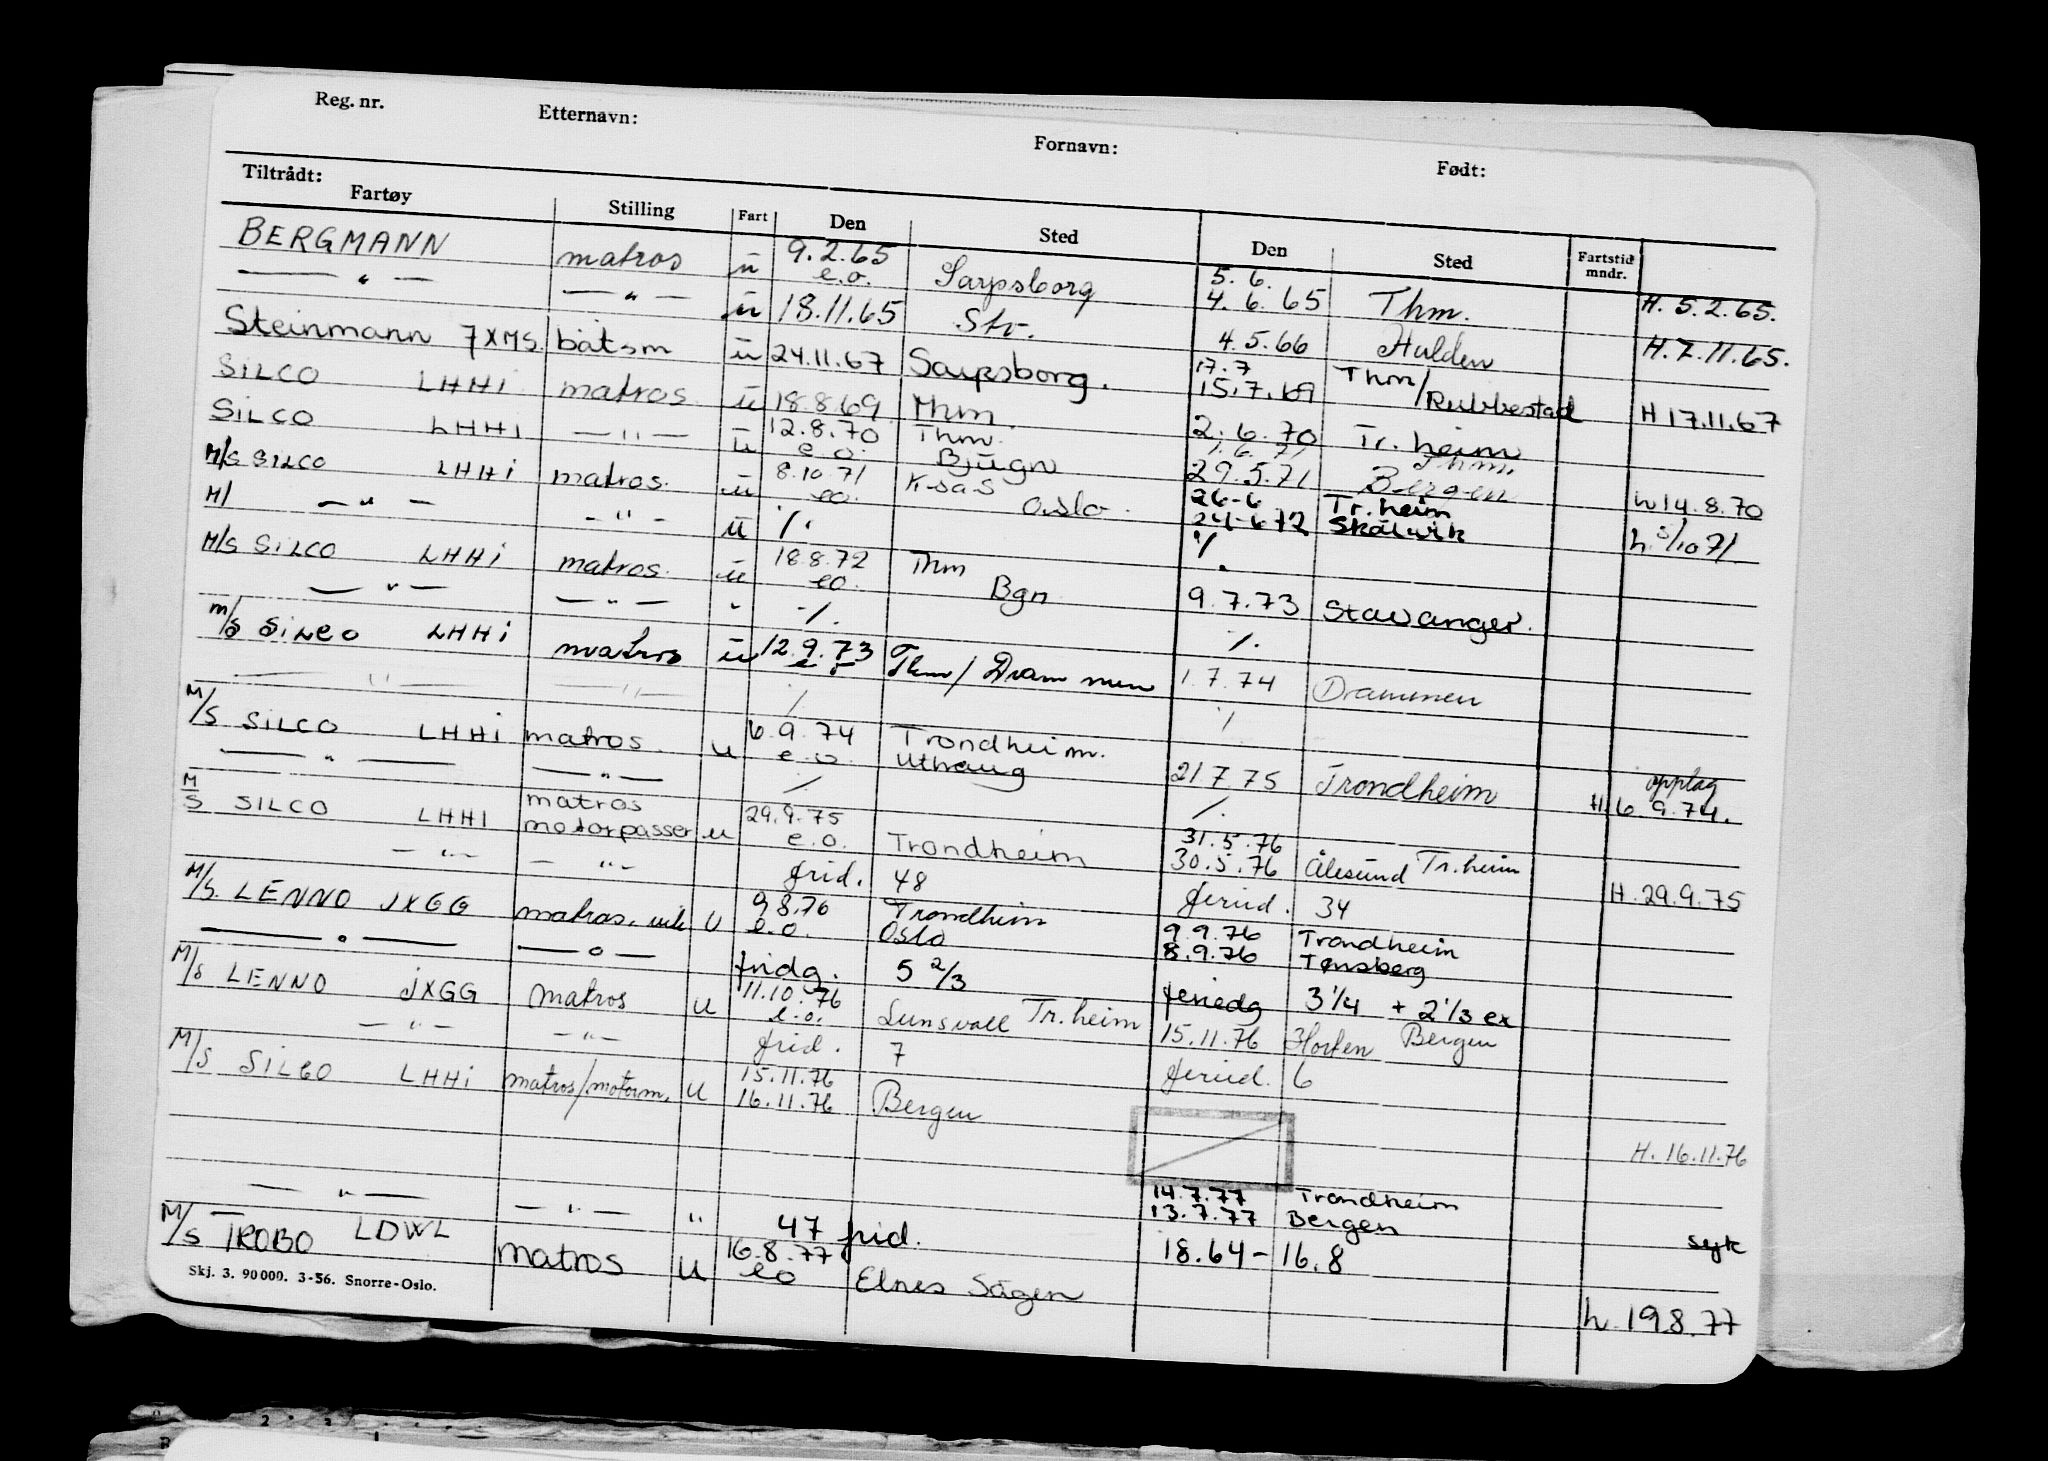 Reg. nr. Etternavn: Fornavn: Født:
Tiltrådt:
Fartøy Stilling Fart Den Sted Den Sted Fartstid mndr.
BERGMANN matros u 9.2.65 e.o. Sarpsborg 5.6. 4.6.65 Thm. H. 5.2.65.
— " — — " — u 18.11.65 Stv. 4.5.66 Halden H. 7.11.65.
Steinmann 7XMS. båtsm u 24.11.67 Sarpsborg. 17.7 15.7.69 Thm/Rubbestad H 17.11.67
SILCO LHHI matros u 18.8.69 Thm. 2.6.70 Tr.heim
SILCO LHHI — " — u 12.8.70 e.o. Thm. Bjugn 1.6.71 29.5.71 Thm. Bergen h 14.8.70
M/S SILCO LHHI matros. u 8.10.71 eo. K-sas Oslo. 26-6 24-6 72 Tr.heim Skålvik h. 8/10 71
M/ — " — — " — u % %
M/S SILCO LHHI matros. u 18.8.72 eo. Thm Bgn 9.7.73 Stavanger.
— " — — " — " % %
M/S SILCO LHHI matros u 12.9.73 e o Thm/Drammen 1.7.74 Drammen
— " — — " — % %
M/S SILCO LHHI matros. u 6.9.74 e.o. Trondheim. Uthaug 21.7.75 Trondheim opplag H. 6.9.74.
— " — — " — % %
M/S SILCO LHHI matros motorpasser u 29.9.75 e.o. Trondheim 31.5.76 30.5.76 Ålesund Tr.heim H. 29.9.75
— " — — " — frid. 48 feried. 34
M/S. LENNO JXGG matros. u 9.8.76 e.o. Trondheim Oslo 9.9.76 8.9.76 Trondheim Tønsberg
— " — — " — fridg. 5 2/3 feriedg 3 1/4 + 2 1/3 ex
M/S LENNO JXGG matros u 11.10.76 e.o. Tr.heim 15.11.76 Horten Bergen
— " — — " — frid. 7 feried. 6
M/S SILCO LHHI matros/motorm. u 15.11.76 16.11.76 Bergen
H. 16.11.76
— " — — " — " 14.7.77 13.7.77 Trondheim Bergen
47 frid. 18.64 - 16.8 syk
M/S TROBO LDWL matros u 16.8.77 eo Elnes Sågen h. 19.8.77
Skj. 3. 90 000. 3-56. Snorre-Oslo.